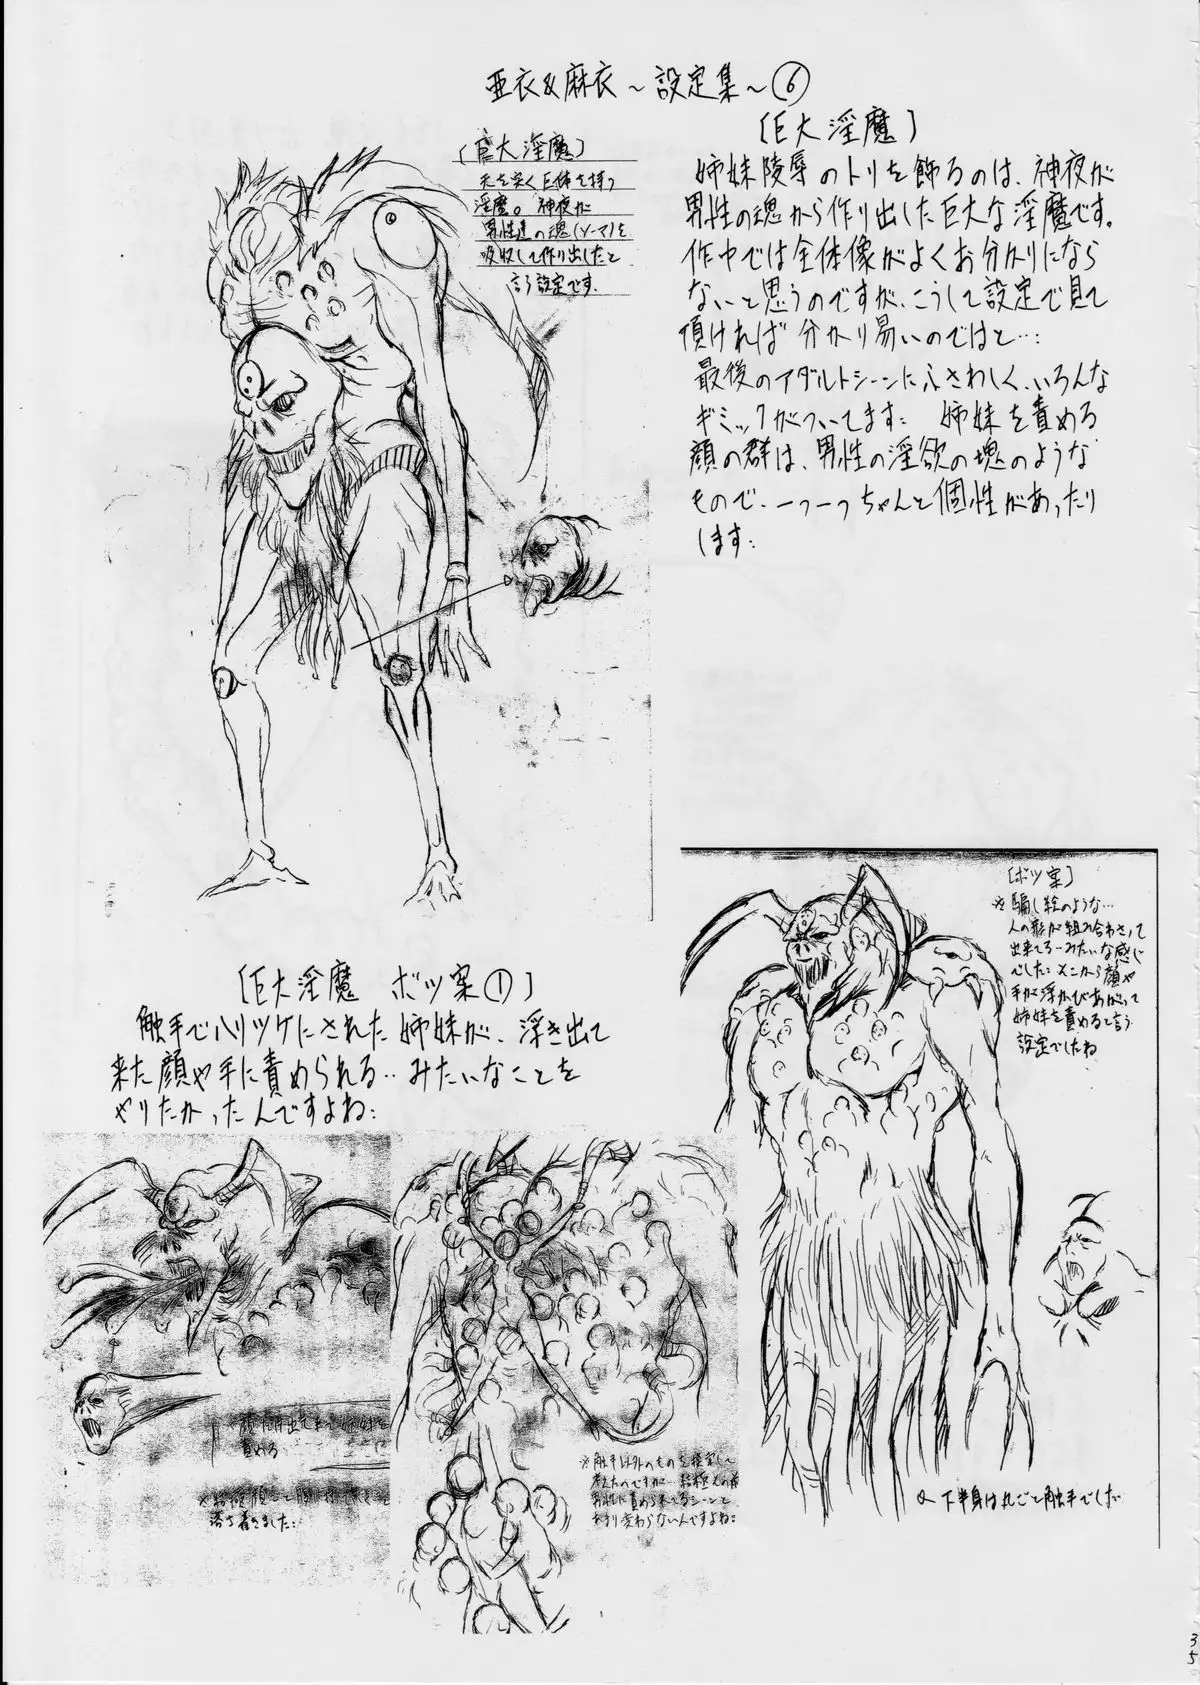 亜衣&麻衣～設定集～⑥
〔巨大淫魔〕
天を突く巨体を持つ
淫魔。神夜が
男性達の魂(ソーマ)を
吸収して作り出したと
言う設定です.
〔巨大淫魔〕
姉妹陵辱のトリを飾るのは、神夜が
男性の魂から作り出した巨大な淫魔です。
作中では全体像がよくお分かりになら
ないと思うのですが、こうして設定で見て
頂ければ分かり易いのではと…
最後のアダルトシーンにふさわしく、いろんな
ギミックがついてます: 姉妹を責める
顔の群は、男性の淫欲の塊のような
もので、一つ一つちゃんと個性があったり
します:
〔ボツ案〕
※騙し絵のような…
人の形が組み合わさって
出来てるーみたいな感じ
でした: そこから顔や
手が浮かびあがって
姉妹を責めると言う
設定でしたね
〔巨大淫魔 ボツ案①〕
触手でハリツケにされた姉妹が、浮き出て
来た顔や手に責められる‥みたいなことを
やりたかったんですよね:
姉妹を
責める
落ち着きました:
※触手以外のものを
考えたのですが…
男性に責められてるシーンと
変わらないんですよね:
下半身は丸ごと触手でした
35